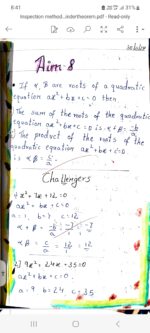 8:41
Inspection method...indertheorem.pdf
.pdf - Read-only
Aim 8
• If α, β are roots of a quadratic
equation ax² + bx + c = 0 then
The sum of the roots of the quadratic
equation ax² + bx + c = 0 is α + β = -b/a
The product of the roots of the
quadratic equation ax² + bx + c = 0
is α × β = c/a
Challengers
x² + 7x + 12 = 0
ax² + bx + c = 0
a = 1, b = 7 c = 12
α + β = -b/a = -7/1 = -7
αβ = c/a = 12/1 = 12
2) 9x² + 24x + 35 = 0
ax² + bx + c = 0
a = 9 b = 24 c = 35